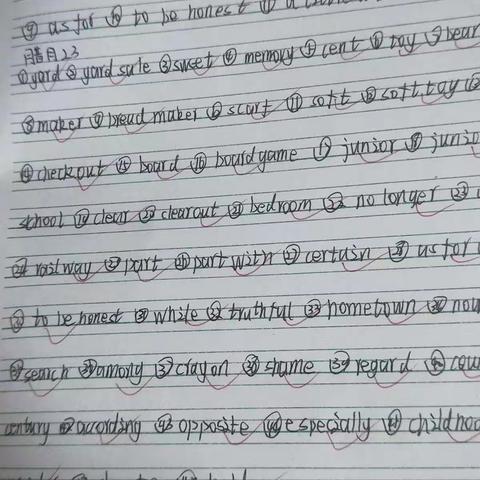 ㉙ as for ㉚ to be honest ㉛
腊月23
①yard ②yard sale ③sweet ④ memory ⑤ cent ⑥ toy ⑦bear
⑧maker ⑨bread maker ⑩ scarf ⑪ soft ⑫ soft toy ⑬
⑭check out ⑮ board ⑯ board game ⑰ junior ⑱ junio
school ⑲ clear ⑳ clear out ㉑ bedroom ㉒ no longer ㉓
㉔ railway ㉕part ㉖part with ㉗ certain ㉘ as for
㉚ to be honest ㉛ while ㉜ truthful ㉝ hometown ㉞ now
㉟search ㊱among ㊲crayon ㊳ shame ㊴ regard ㊵ cou
century ㊷according ㊸ opposite ㊹especially ㊺ childhoo